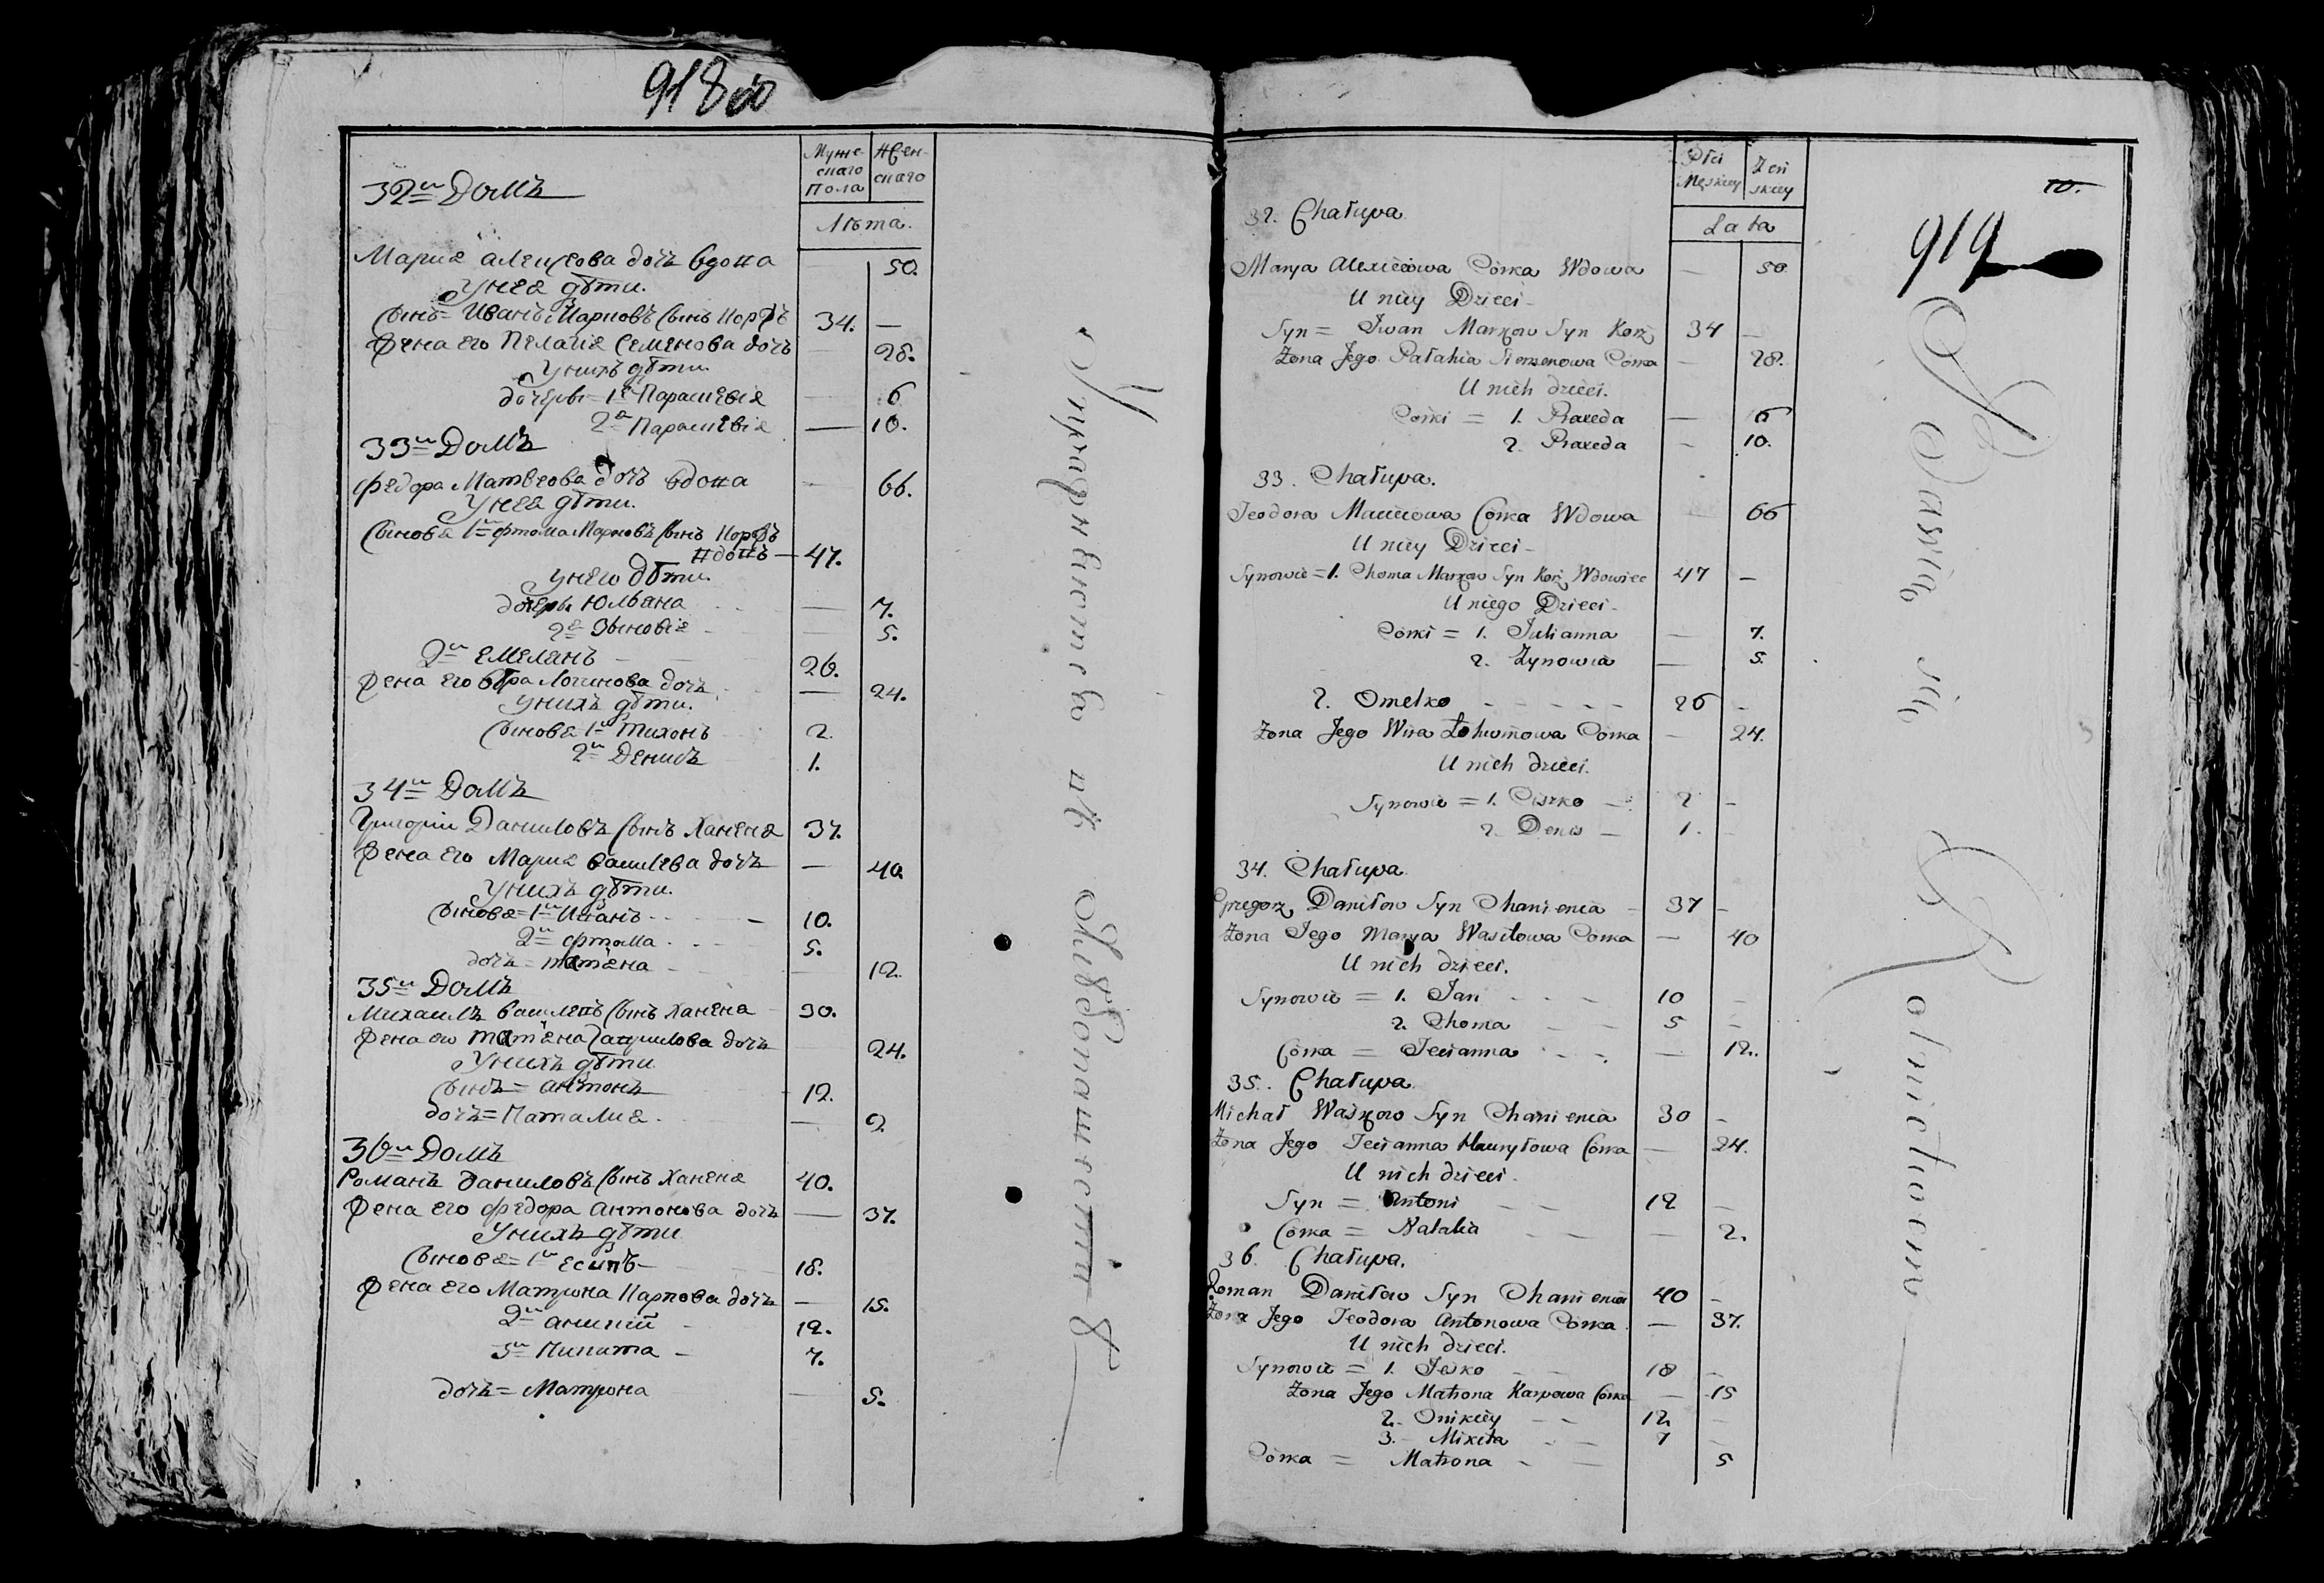 918 об
Муже-
скаго
Пола
Жен-
скаго
Лѣта.
32й Домъ
Мариѧ алеѯѣова дочь вдова 50.
У нея дѣти.
Сынъ = Иванъ Марковъ Сынъ Коржъ 34. —
Жена его Пелагія Семенова дочь — 28.
У нихъ дѣти.
дочери = 1я Параскевія — 6
2я Параскевія — 10.
33й Домъ
Федора Матвеова дочь вдова — 66.
У нея дѣти.
Сыновя 1й Фтома Марковъ Сынъ Коржъ
вдовъ — 47.
У него дѣти.
дочерь Юльяна — 7.
2я Зѣновія — 5.
2й Емелянъ — 26.
Жена его Вѣра Логинова дочь — 24.
У нихъ дѣти.
Сыновя 1й Тихонъ 2.
2й Денисъ 1.
34й Домъ
Григорій Даниловъ Сынъ Ханеня 37.
Жена его Мария Василева дочь — 40.
У нихъ дѣти.
Сыновя = 1й Иванъ — 10.
2й Фтома 5.
дочь = татяна — 12.
35й Домъ
Михаилъ Василевъ Сынъ Ханеня 30.
Жена его татяна Гаврилова дочь 24.
У нихъ дѣти
Сынъ = антонъ 12.
дочь = Наталия — 2
36й Домъ
Романъ Даниловъ Сынъ Ханеня 40.
Жена его Федора антонова дочь — 37.
У нихъ дѣти
Сыновя = 1й Есипъ — 18.
Жена его Матрона Карпова дочь — 15.
2й аникій 12.
3й Никита — 7.
дочь = Матрона — 5.
Упражняются въ Хлѣбопашествѣ
10.
919
Płci
Męskiey
Żeń
skiey
Lata
32. Chałupa.
Marya Alexieiowa Córka Wdowa — 50.
U niey Dzieci —
Syn = Iwan Markow Syn Korż 34 —
Żona Jego Pałahia Siemenowa Córka — 28.
U nich dzieci.
Córki = 1. Praxeda — 6
2. Praxeda — 10.
33. Chałupa.
Teodora Macieiowa Córka Wdowa — 66
U niey Dzieci —
Synowie = 1. Choma Markow Syn Korż Wdowiec 47 —
U niego Dzieci —
Córki = 1. Julianna — 7.
2. Zynowia — 5.
2. Omelko 26 —
Żona Jego Wira Łohwinowa Córka — 24.
U nich dzieci.
Synowie = 1. Ciszko — 2 —
2. Denis — 1. —
34. Chałupa.
Grzegorz Daniłow Syn Chanienia 37 —
Żona Jego Marya Wasilowa Córka — 40
U nich dzieci.
Synowie = 1. Jan 10 —
2. Choma 5 —
Córka = Tecianna — 12.
35. Chałupa.
Michał Waśkow Syn Chanienia 30 —
Żona Jego Tecianna Hawryłowa Córka — 24.
U nich dzieci.
Syn = Antoni 12 —
Córka = Natalia — 2.
36. Chałupa.
Roman Daniłow Syn Chanienia 40 —
Żona Jego Teodora Antonowa Córka — 37.
U nich dzieci.
Synowie = 1. Jeśko 18 —
Żona Jego Matrona Karpowa Córka — 15
2. Onikiey 12 —
3. Mikita 7 —
Córka = Matrona — 5
Bawią się Rolnictwem